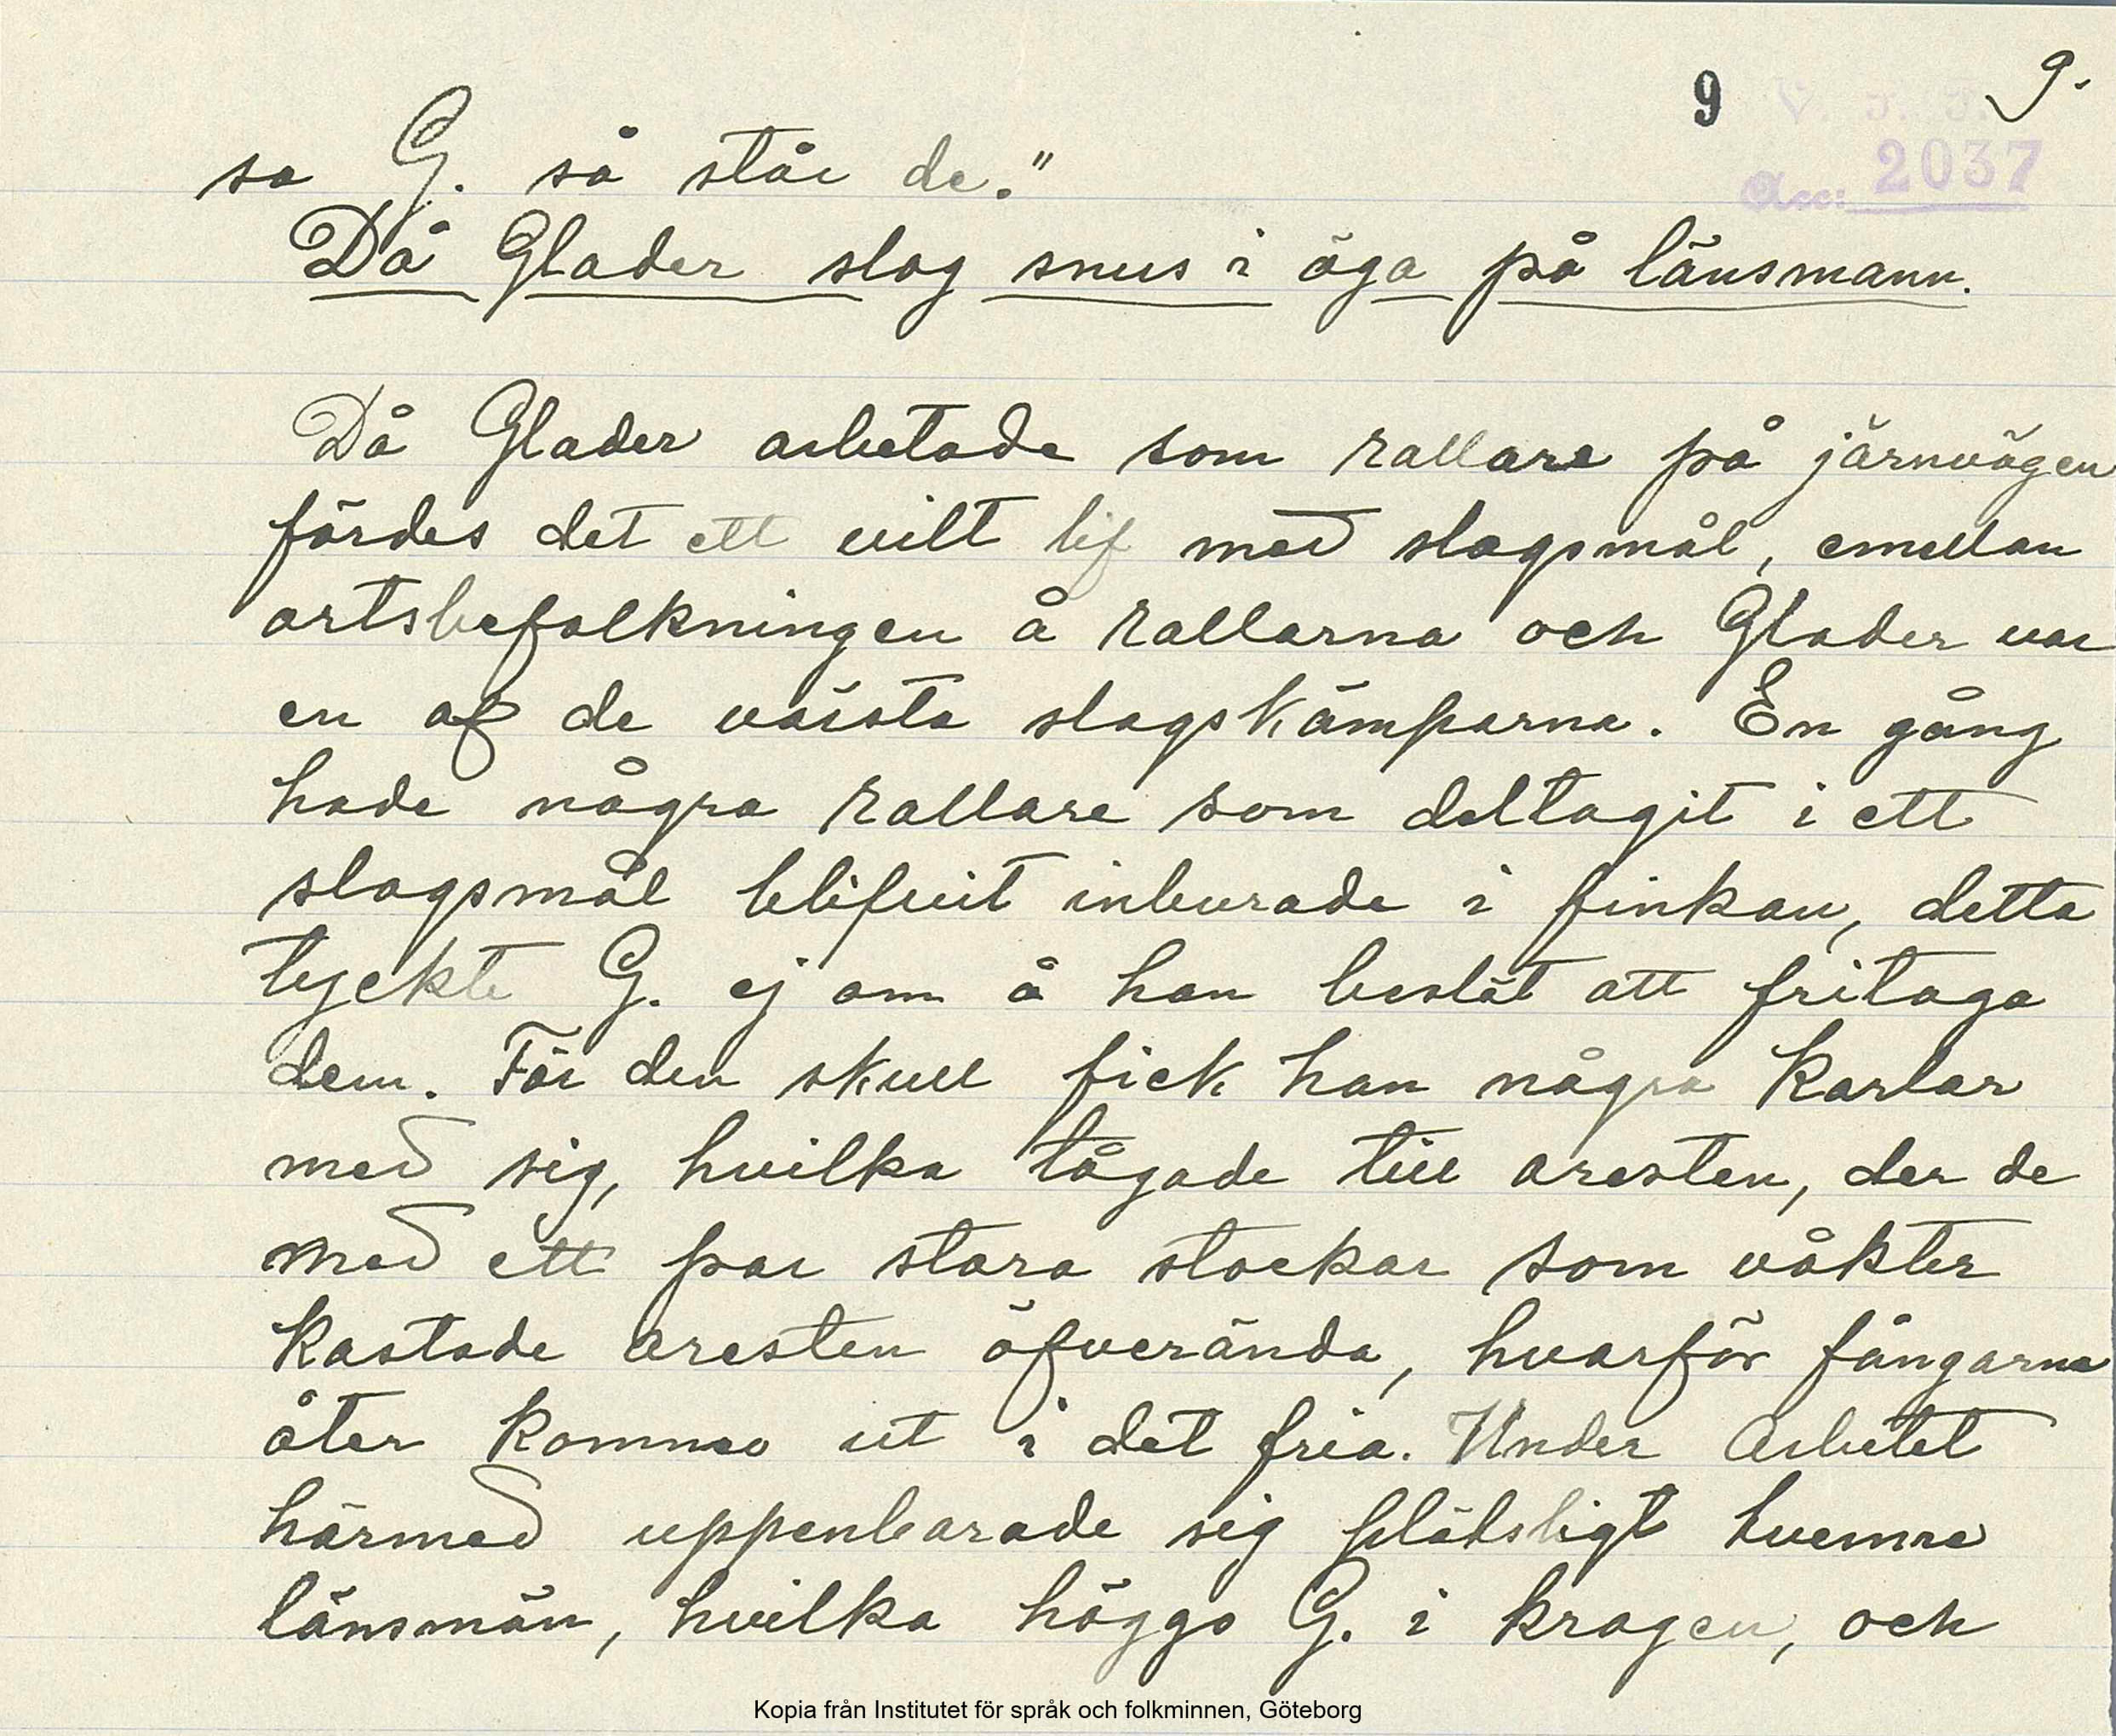 9 9.
V. F. F.
Acc: 2037
sa G. så står de."
Då Glader slog snus i öga på länsmann.
Då Glader arbetade som rallare på järnvägen
fördes det ett vilt lif med slagsmål, emellan
ortsbefolkningen å rallarna och Glader var
en af de värsta slagskämparna. En gång
hade några rallare som deltagit i ett
slagsmål blifvit inburade i finkan, detta
tyckte G. ej om å han beslöt att fritaga
dem. För den skull fick han några karlar
med sig, hvilka tågade till aresten, der de
med ett par stora stockar som våkter
kastade aresten öfverända, hvarför fångarna
åter kommo ut i det fria. Under arbetet
härmed uppenbarade sig plötsligt tvenne
länsmän, hvilka höggo G. i kragen, och
Kopia från Institutet för språk och folkminnen, Göteborg